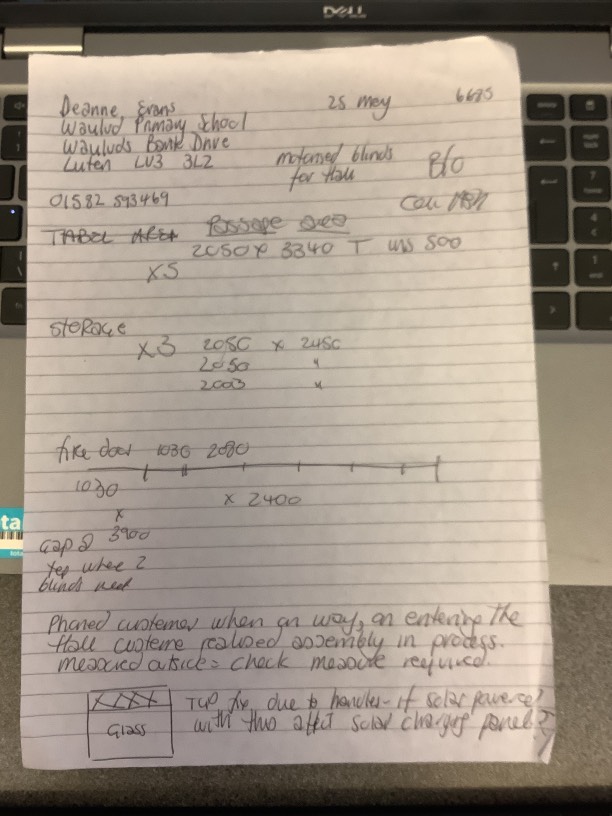 DELL
Deanne, Evans
25 mey
6685
Waulud Primary School
Wauluds Bank Drive
Luten LU3 3LZ
motorised blinds
for Hall
01582 593469
Call
TABEL AREA
Passage area
2050 x 3340 T ins 500
X5
Storage
X3 2050 x 2450
2050 "
2003 "
fire door 1030 2080
1030
x 2400
x
3900
Gap @
top where 2
blinds meet
Phoned customer when on way, on entering the
Hall custeme realised assembly in process.
measured outside = check measure required.
XXXX
Glass
Top fix due to handles - if solar powered?
with this affect solar charging panel??
ta